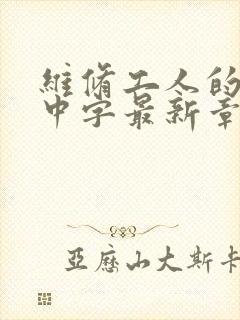 維脩工人的
中字最新章
亞歷山大斯卡